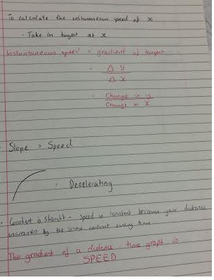 To calculate the instantaneous speed of x
- Take in tangent at x
Instantaneous speed = gradient of tangent
= Δ y
Δ x
= Change in y
Change in x
Slope = Speed
- Decelerating
Constant a straight - Speed is constant because your distance
increases by the same amount every time
The gradient of a distance time graph is
SPEED